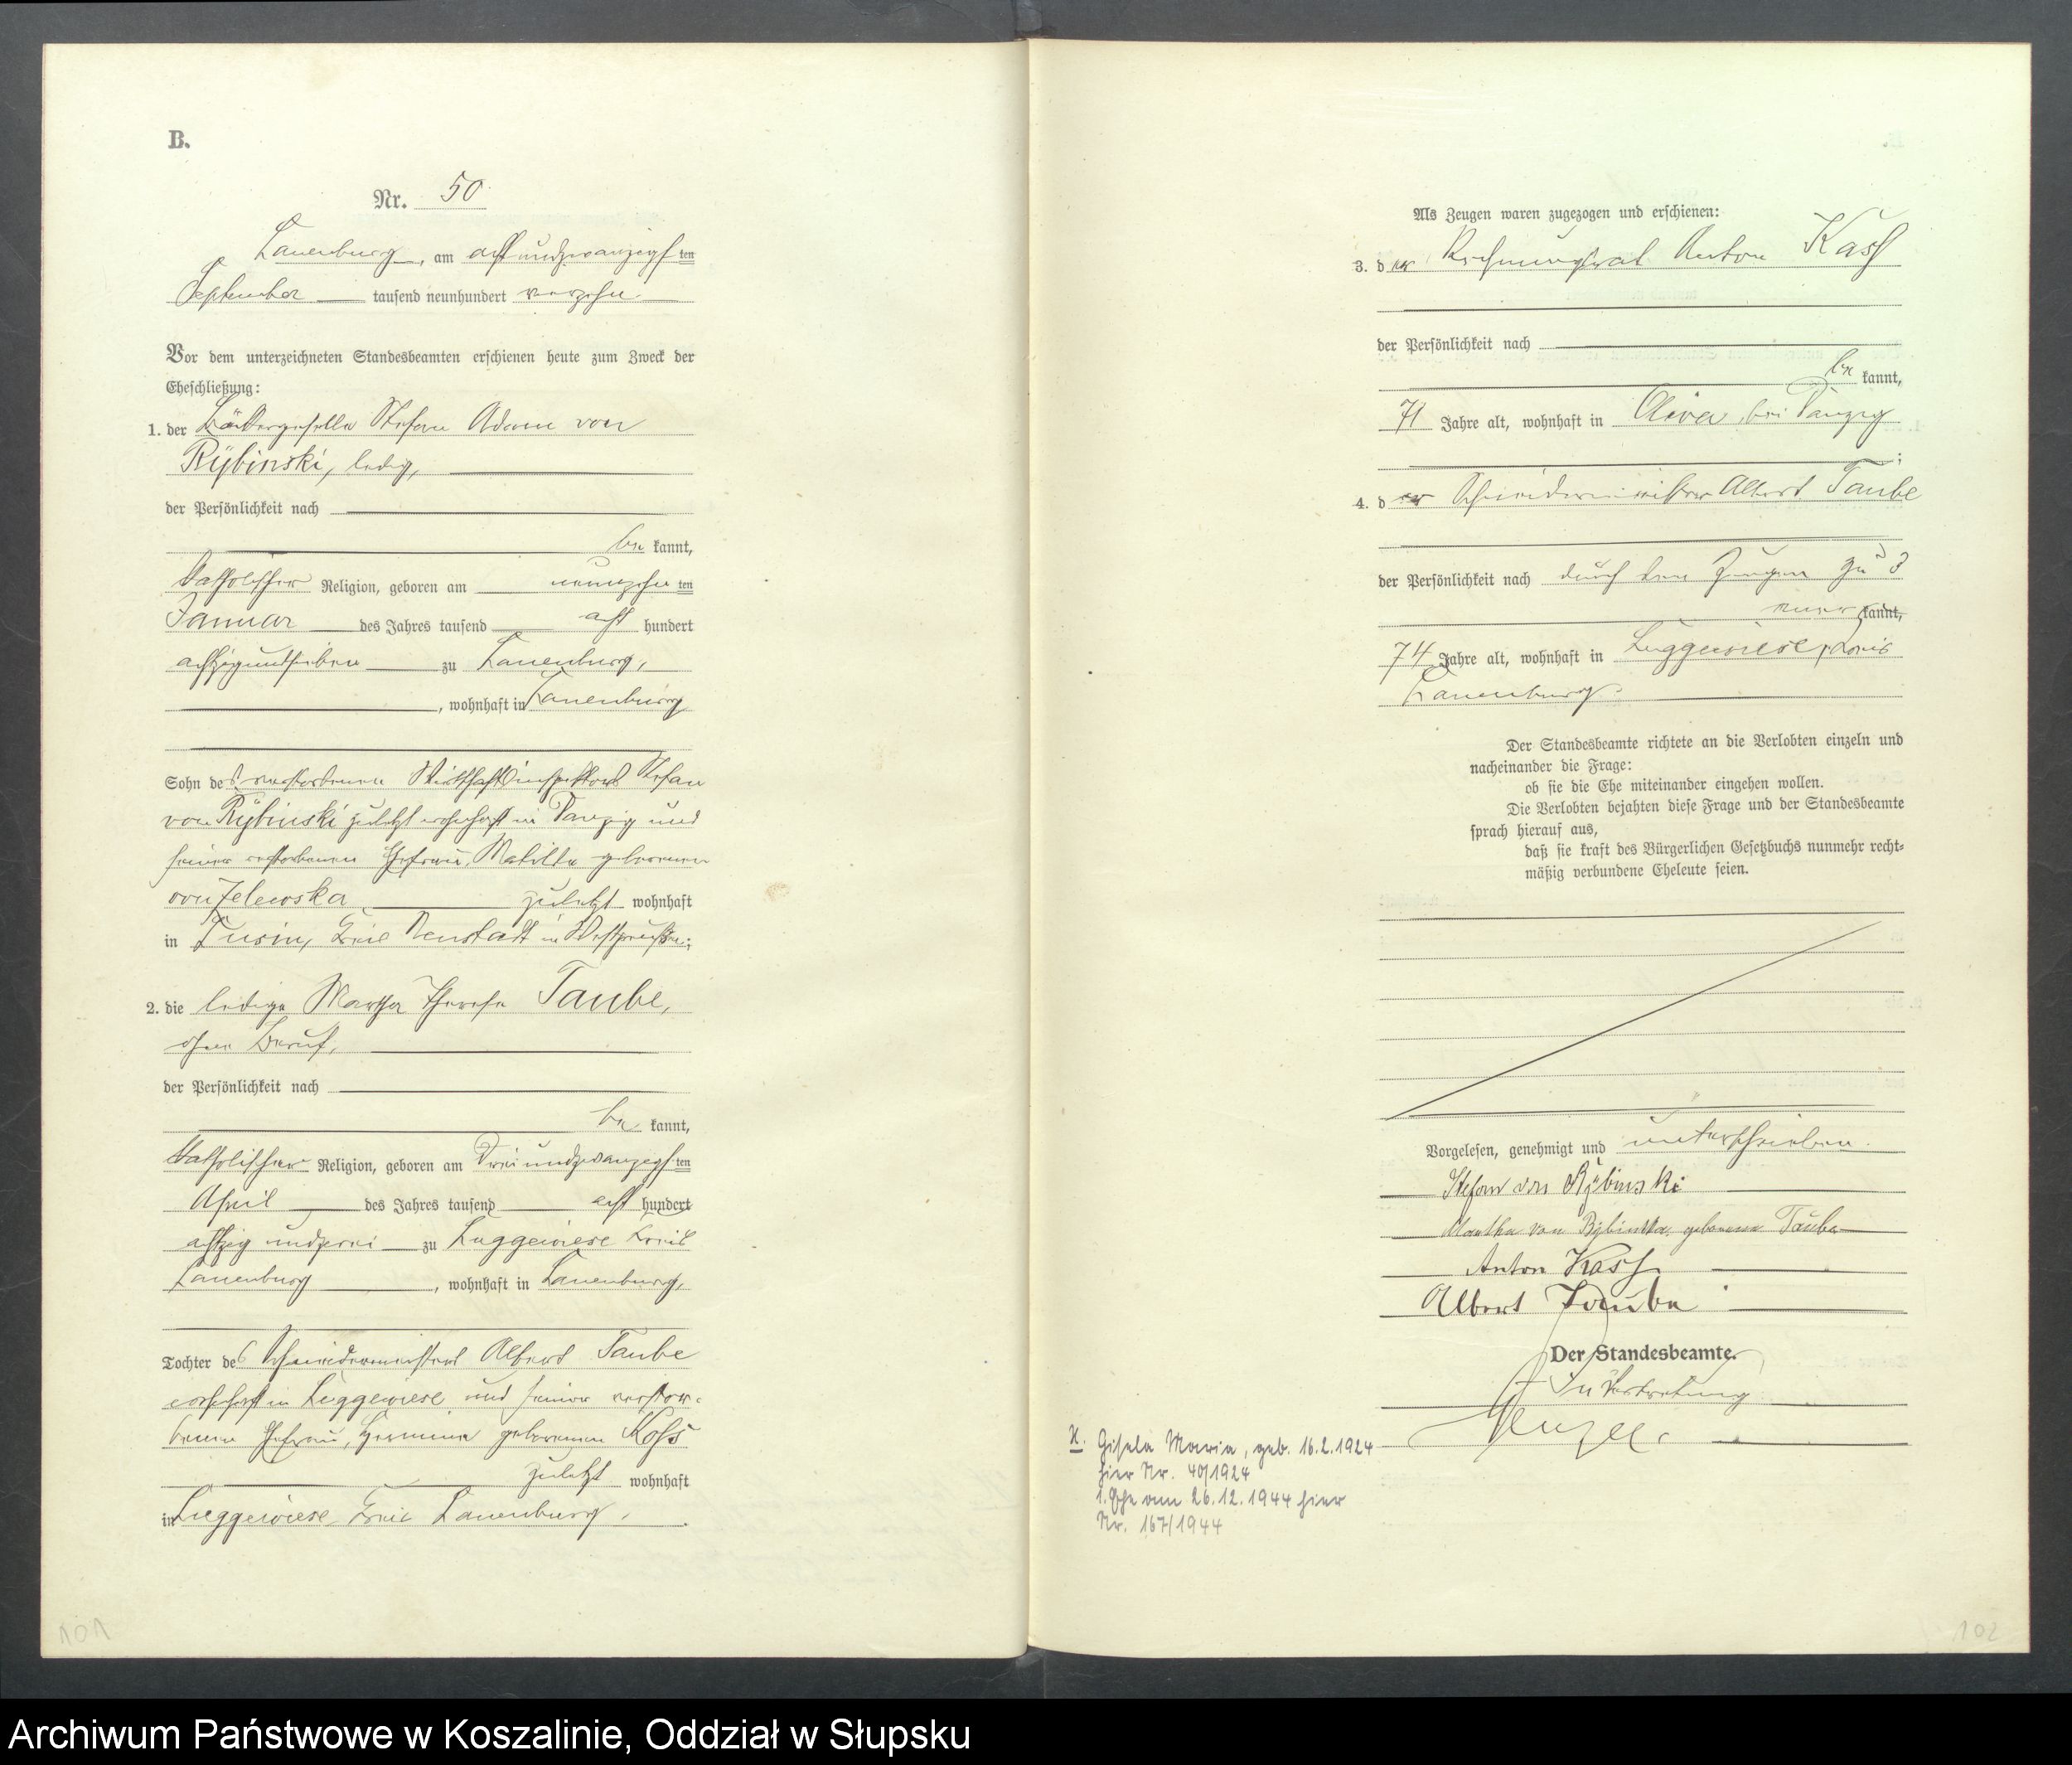 B.
Nr. 50
Lauenburg, am achtundzwanzigsten
September tausend neunhundert vierzehn
Vor dem unterzeichneten Standesbeamten erschienen heute zum Zweck der
Eheschließung:
1. der Bäckergeselle Stefan Adam von
Rÿbinski, ledig,
der Persönlichkeit nach
bekannt,
katholischer Religion, geboren am neunzehnten
Januar des Jahres tausend acht hundert
achtzigundsieben zu Lauenburg,
, wohnhaft in Lauenburg
Sohn des verstorbenen Wirthschaftsinspektors Stefan
von Rÿbinski zuletzt wohnhaft in Danzig und
seiner verstorbenen Ehefrau, Matilde geborenen
von Zelewska zuletzt wohnhaft
in Tusin, Kreis Neustadt in Westpreußen;
2. die ledige Martha Therese Taube,
ohne Beruf,
der Persönlichkeit nach
bekannt,
katholischer Religion, geboren am dreiundzwanzigsten
April des Jahres tausend acht hundert
achtzig undzwei zu Luggewiese Kreis
Lauenburg, wohnhaft in Lauenburg,
Tochter des Schneidermeisters Albert Taube
wohnhaft in Luggewiese und seiner verstor-
benen Ehefrau, Hermine geborenen Koss
zuletzt wohnhaft
in Luggewiese Kreis Lauenburg.
101
Als Zeugen waren zugezogen und erschienen:
3. der Rechnungsrat Anton Kass
der Persönlichkeit nach
bekannt,
71 Jahre alt, wohnhaft in Oliva bei Danzig
;
4. der Schneidermeister Albert Taube
der Persönlichkeit nach durch den Zeugen zu 3
anerkannt,
74 Jahre alt, wohnhaft in Luggewiese, Kreis
Lauenburg.
Der Standesbeamte richtete an die Verlobten einzeln und
nacheinander die Frage:
ob sie die Ehe miteinander eingehen wollen.
Die Verlobten bejahten diese Frage und der Standesbeamte
sprach hierauf aus,
daß sie kraft des Bürgerlichen Gesetzbuchs nunmehr recht-
mäßig verbundene Eheleute seien.
Vorgelesen, genehmigt und unterschrieben.
Stefan von Rÿbinski
Martha von Rÿbinska, geborene Taube
Anton Kass
Albert Taube
Der Standesbeamte.
In Vertretung
Gisela Maria, geb. 16.2.1924
hier Nr. 40/1924
1. Ehe am 26.12.1944 hier
Nr. 167/1944
102
Archiwum Państwowe w Koszalinie, Oddział w Słupsku